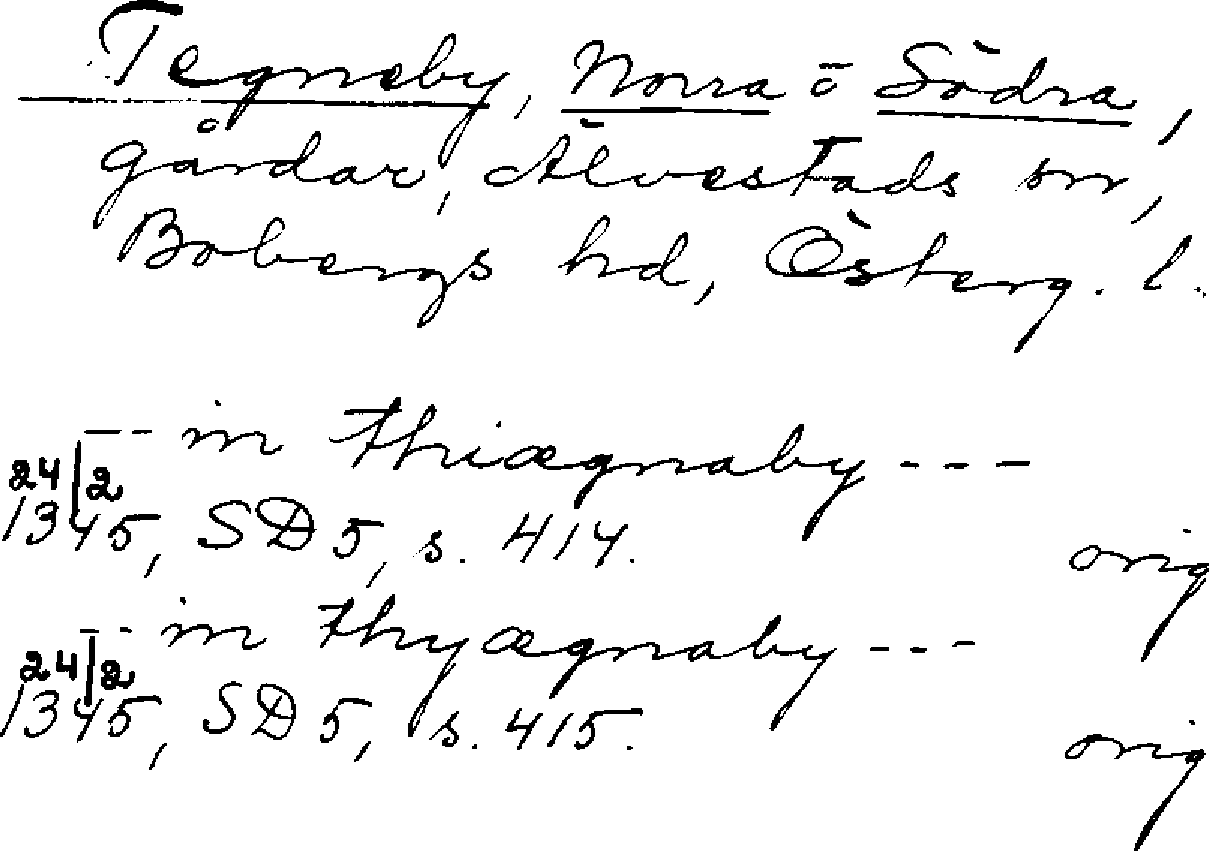 Tegneby, Norra o Södra,
gårdar, Älvestads sn,
Bobergs hd, Österg. l.
-- in thiægnaby ---
24/2
1345, SD 5, s. 414. orig
-- in thyægnaby ---
24/2
1345, SD 5, s. 415. orig